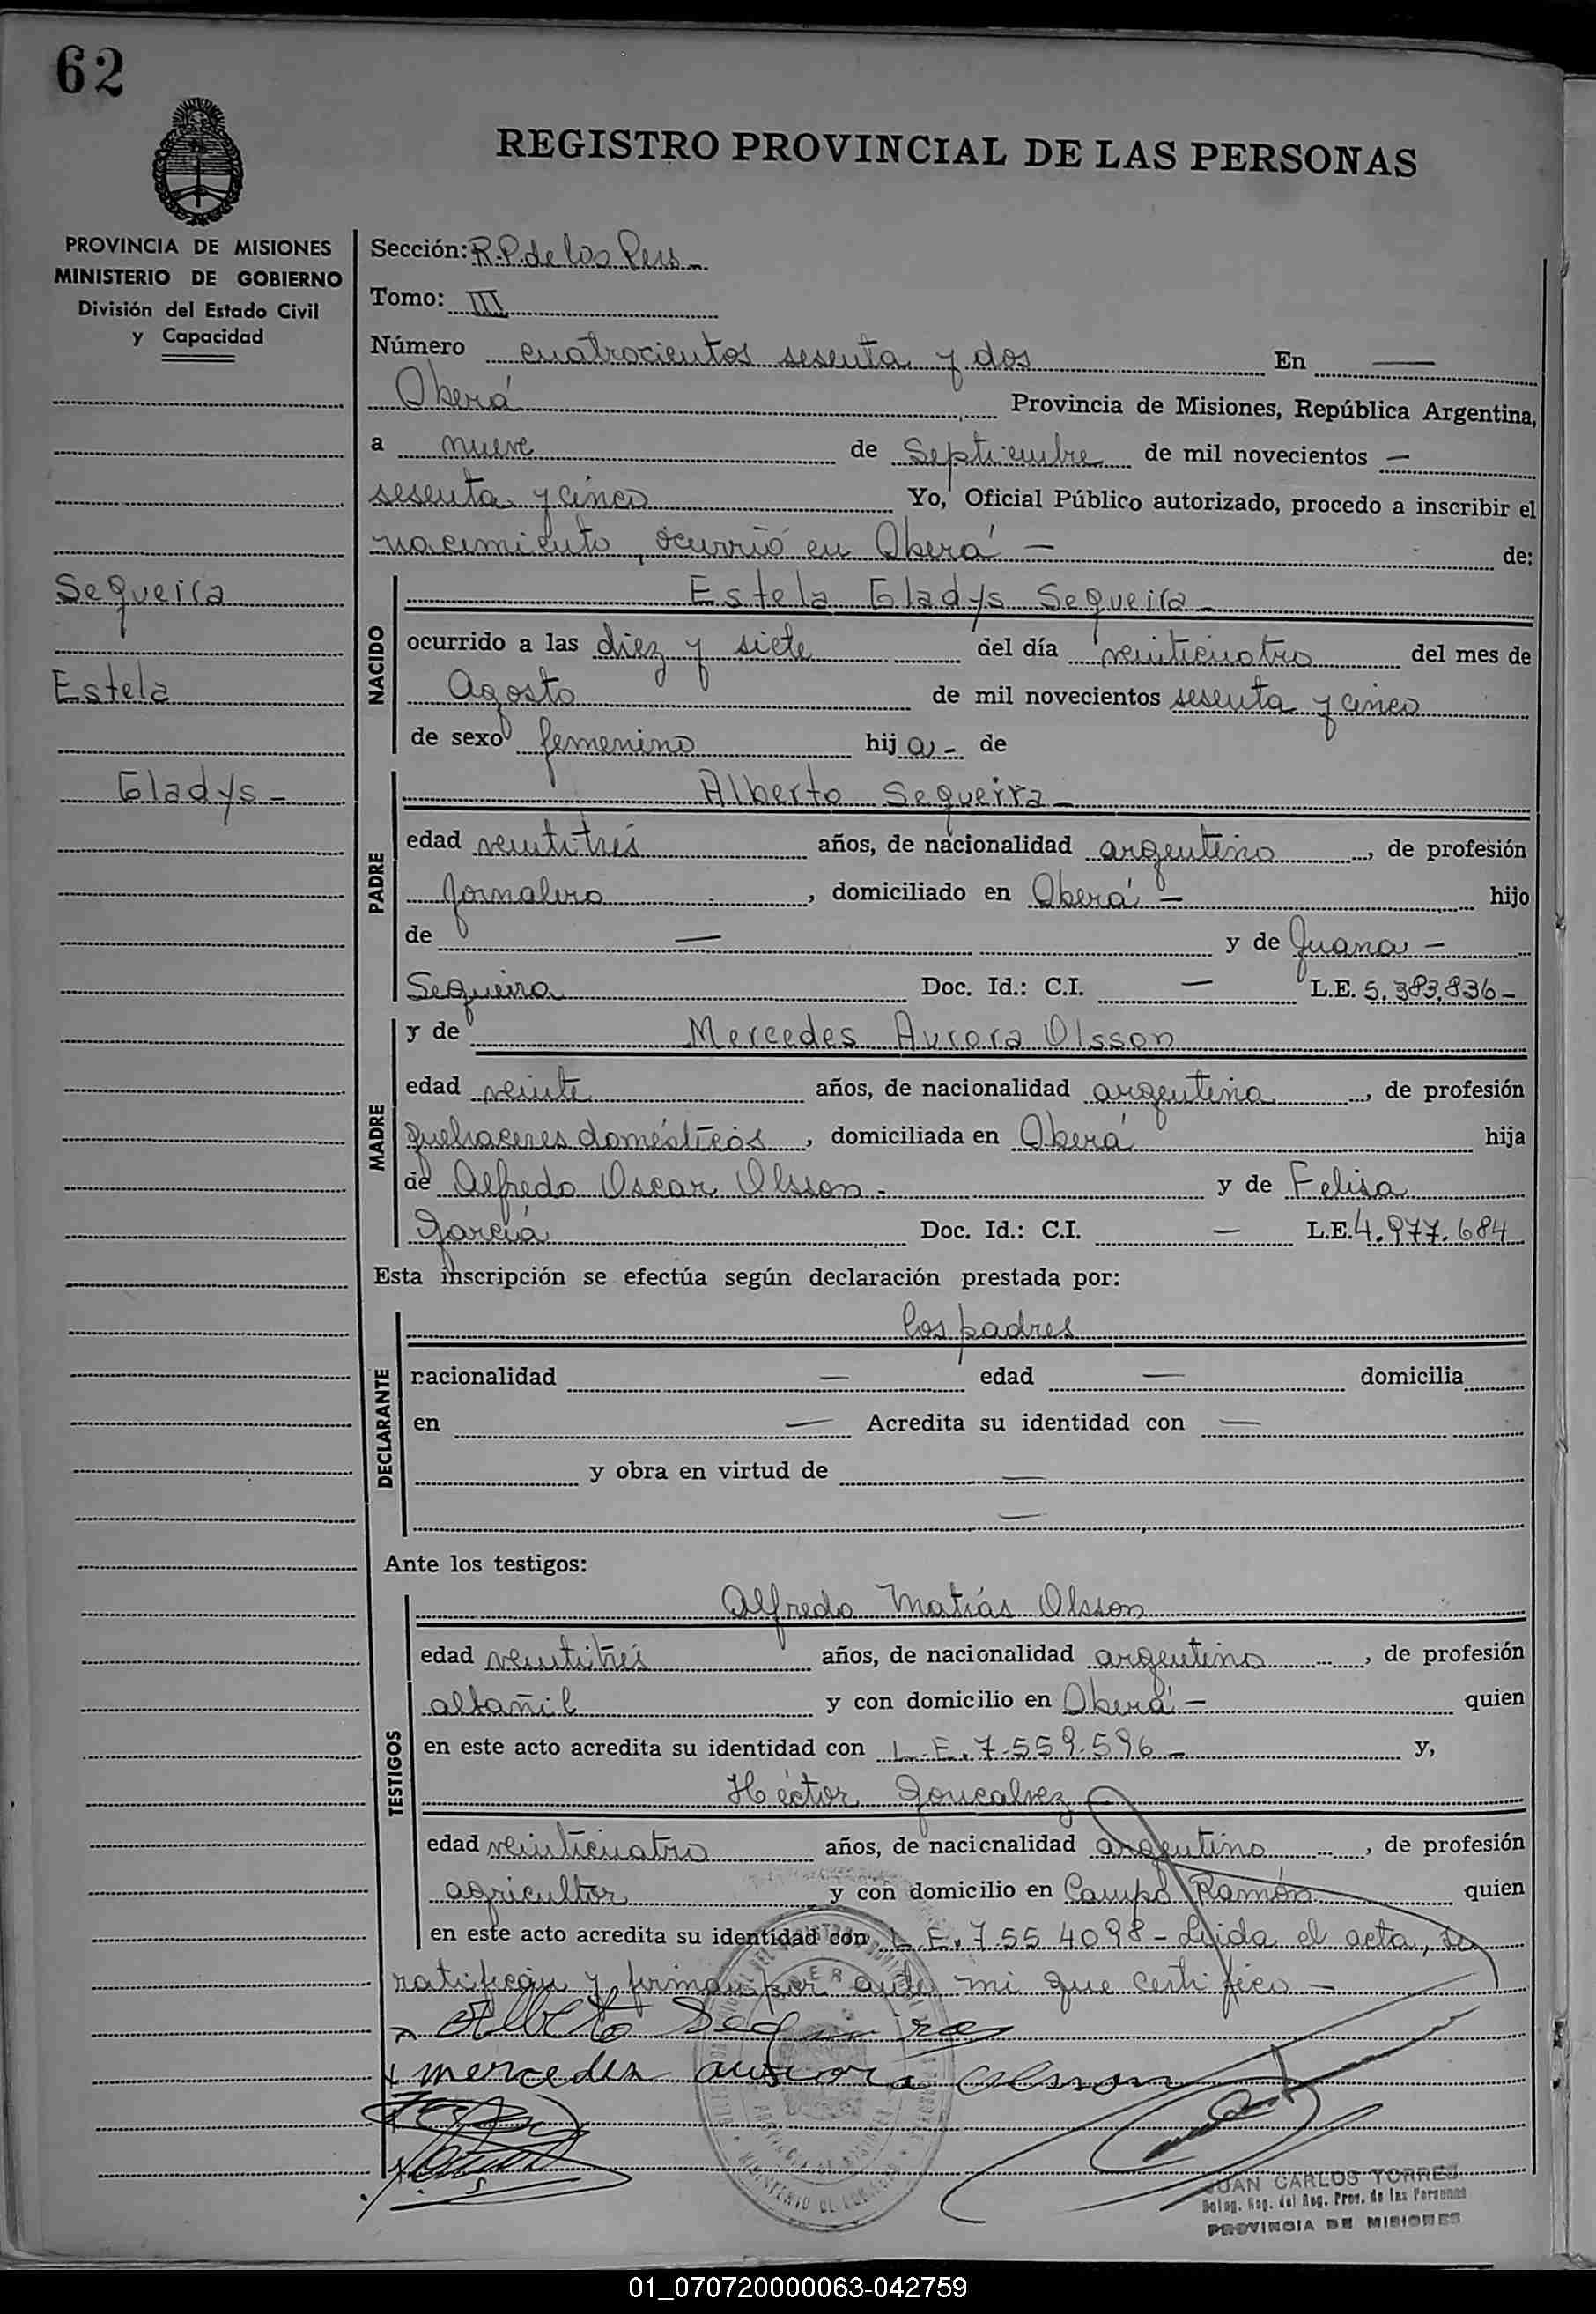 62
REGISTRO PROVINCIAL DE LAS PERSONAS
PROVINCIA DE MISIONES
MINISTERIO DE GOBIERNO
División del Estado Civil
y Capacidad
Sequeira
Estela
Gladys -
Sección: R.P. de las Pers -
Tomo: III
Número cuatrocientos sesenta y dos En —
Oberá Provincia de Misiones, República Argentina,
a nueve de Septiembre de mil novecientos —
sesenta y cinco Yo, Oficial Público autorizado, procedo a inscribir el
nacimiento, ocurrió en Oberá — de:
NACIDO
Estela Gladys Sequeira -
ocurrido a las diez y siete del día veinticuatro del mes de
Agosto de mil novecientos sesenta y cinco
de sexo femenino hij a - de
PADRE
Alberto Sequeira -
edad veintitrés años, de nacionalidad argentino, de profesión
Jornalero, domiciliado en Oberá - hijo
de — y de Juana -
Sequeira Doc. Id.: C.I. — L.E. 5.383.836 -
MADRE
y de Mercedes Aurora Olsson
edad veinte años, de nacionalidad argentina, de profesión
quehaceres domésticos, domiciliada en Oberá hija
de Alfredo Oscar Olsson - y de Felisa
García Doc. Id.: C.I. — L.E. 4.977.684
Esta inscripción se efectúa según declaración prestada por:
DECLARANTE
los padres
nacionalidad — edad — domicilia
en — Acredita su identidad con —
y obra en virtud de —
—
Ante los testigos:
TESTIGOS
Alfredo Matías Olsson
edad veintitrés años, de nacionalidad argentino, de profesión
albañil y con domicilio en Oberá - quien
en este acto acredita su identidad con L.E. 7.559.596 - y,
Héctor Goncalvez
edad veinticuatro años, de nacionalidad argentino, de profesión
agricultor y con domicilio en Campo Ramón quien
en este acto acredita su identidad con L.E. 7.554098 - Leída el acta, la
ratifican y firman por ante mi que certifico -
x Alberto Sequeira
x mercedes aurora olsson
JUAN CARLOS TORRES
Deleg. Reg. del Reg. Prov. de las Personas
PROVINCIA DE MISIONES
01_070720000063-042759